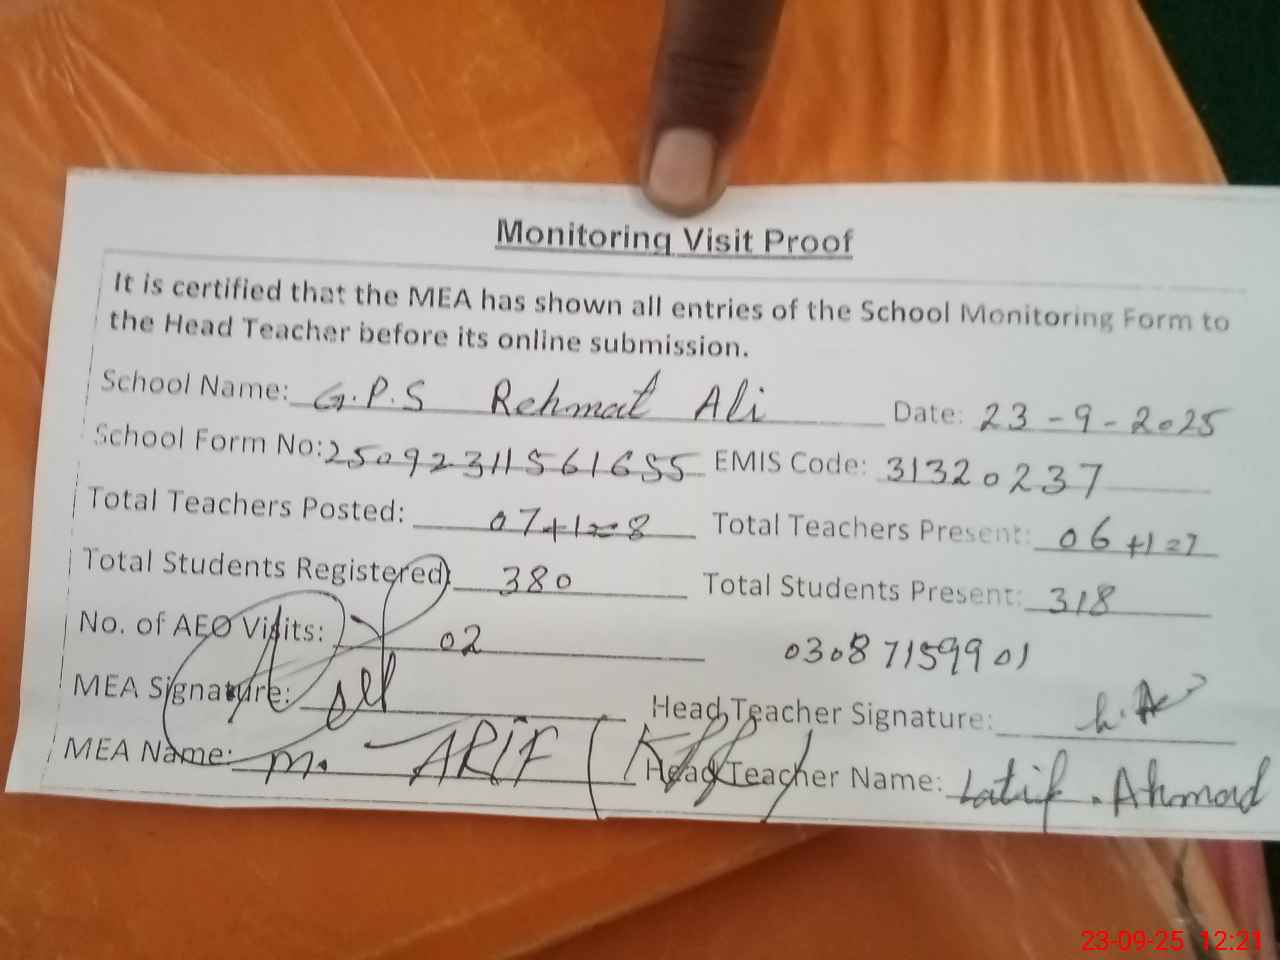 Monitoring Visit Proof
It is certified that the MEA has shown all entries of the School Monitoring Form to
the Head Teacher before its online submission.
School Name: G.P.S Rehmat Ali Date: 23-9-2025
School Form No: 25092311561655 EMIS Code: 31320237
Total Teachers Posted: 07+1=8 Total Teachers Present: 06+1=7
Total Students Registered: 380 Total Students Present: 318
No. of AEO Visits: 02 03087159901
MEA Signature: Head Teacher Signature:
MEA Name: M. ARIF Head Teacher Name: Latif. Ahmad
23-09-25 12:21